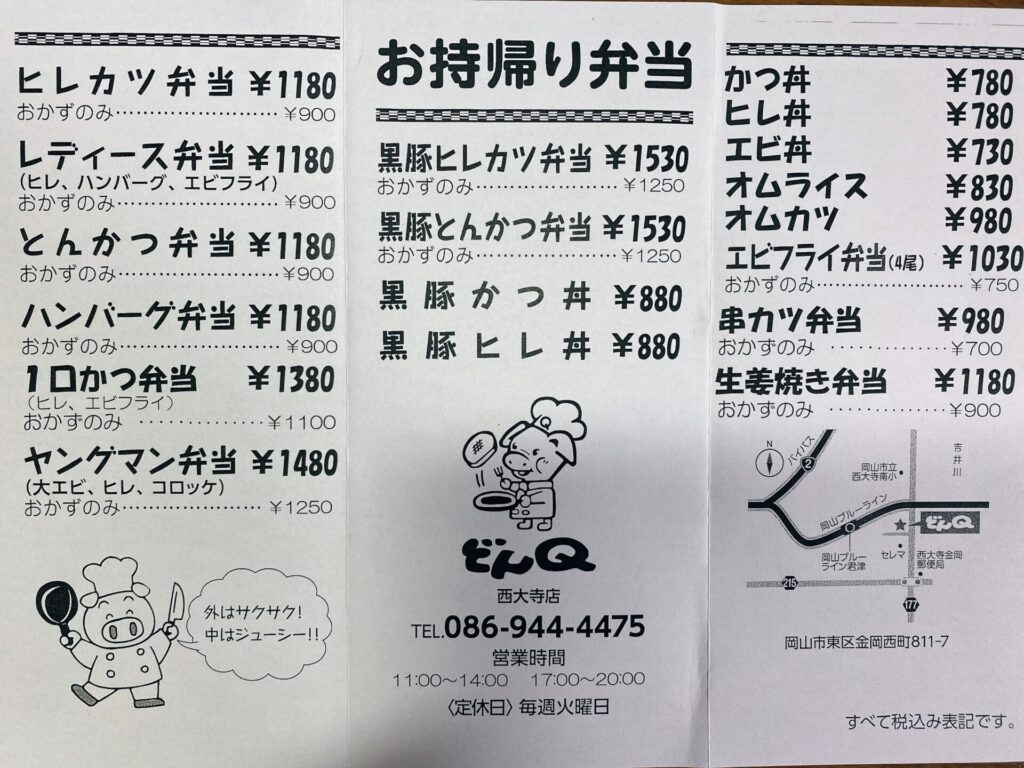 ヒレカツ弁当 ¥1180
おかずのみ…………………… ¥900
レディース弁当 ¥1180
(ヒレ、ハンバーグ、エビフライ)
おかずのみ…………………… ¥900
とんかつ弁当 ¥1180
おかずのみ…………………… ¥900
ハンバーグ弁当 ¥1180
おかずのみ…………………… ¥900
1口かつ弁当 ¥1380
(ヒレ、エビフライ)
おかずのみ …………… ¥1100
ヤングマン弁当 ¥1480
(大エビ、ヒレ、コロッケ)
おかずのみ………………… ¥1250
外はサクサク!
中はジューシー!!
お持帰り弁当
黒豚ヒレカツ弁当 ¥1530
おかずのみ………………… ¥1250
黒豚とんかつ弁当 ¥1530
おかずのみ………………… ¥1250
黒豚かつ丼 ¥880
黒豚ヒレ丼 ¥880
Q
丼
どんQ
西大寺店
TEL.086-944-4475
営業時間
11:00〜14:00 17:00〜20:00
〈定休日〉毎週火曜日
かつ丼 ¥780
ヒレ丼 ¥780
エビ丼 ¥730
オムライス ¥830
オムカツ ¥980
エビフライ弁当(4尾) ¥1030
おかずのみ………………… ¥750
串カツ弁当 ¥980
おかずのみ …………… ¥700
生姜焼き弁当 ¥1180
おかずのみ …………… ¥900
N
バイパス
2
岡山市立
西大寺南小
吉井川
岡山ブルーライン
どんQ
岡山ブルー
ライン君津
セレマ
西大寺金岡
郵便局
215
177
岡山市東区金岡西町811-7
すべて税込み表記です。